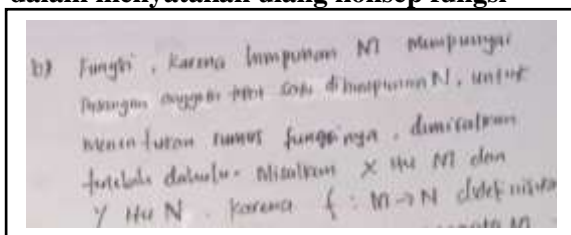 dalam menyatakan ulang konsep fungsi
b) Fungsi, karena himpunan M mempunyai
pasangan anggota tepat satu di himpunan N, untuk
menentukan rumus fungsinya, dimisalkan
terlebih dahulu. Misalkan X itu M dan
Y itu N. karena f : M → N